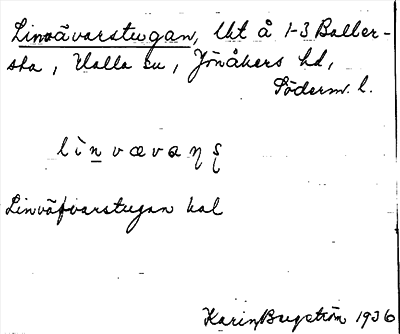 Linvävarstugan, Ukt å 1-3 Baller-
sta, Halla sn, Jönåkers hd,
Söderm. l.
Linväfvarstugan kal
Karin Bergström 1936